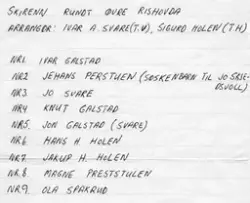 SKIRENN RUNDT ØVRE RISHOVDA
ARRANGØR: IVAR A. SVARE(T.V), SIGURD HOLEN(T.H)
NR1. IVAR GALSTAD
NR2 JEHANS PERSTUEN (SØSKENBARN TIL JO SKJE-
DSVOLL)
NR3 JO SVARE
NR4 KNUT GALSTAD
NR5. JON GALSTAD (SVARE)
NR6 HANS H. HOLEN
NR7. JAKUP H. HOLEN
NR.8. MAGNE PRESTSTULEN
NR.9. OLA SPAKRUD